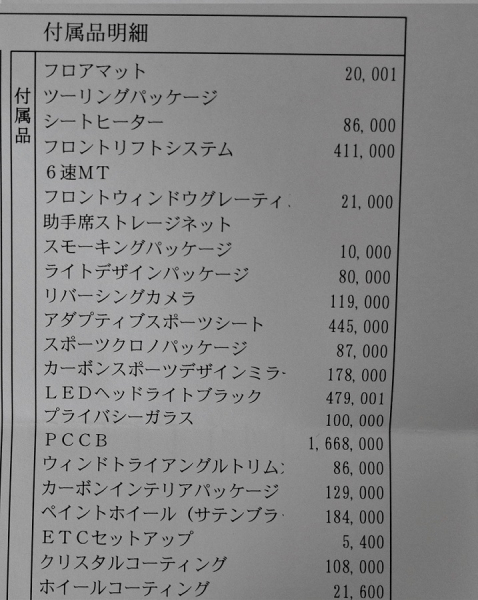 付属品明細
付属品
フロアマット 20,001
ツーリングパッケージ
シートヒーター 86,000
フロントリフトシステム 411,000
６速ＭＴ
フロントウィンドウグレーティ 21,000
助手席ストレージネット
スモーキングパッケージ 10,000
ライトデザインパッケージ 80,000
リバーシングカメラ 119,000
アダプティブスポーツシート 445,000
スポーツクロノパッケージ 87,000
カーボンスポーツデザインミラー 178,000
ＬＥＤヘッドライトブラック 479,001
プライバシーガラス 100,000
ＰＣＣＢ 1,668,000
ウィンドトライアングルトリム 86,000
カーボンインテリアパッケージ 129,000
ペイントホイール（サテンブラ 184,000
ＥＴＣセットアップ 5,400
クリスタルコーティング 108,000
ホイールコーティング 21,600